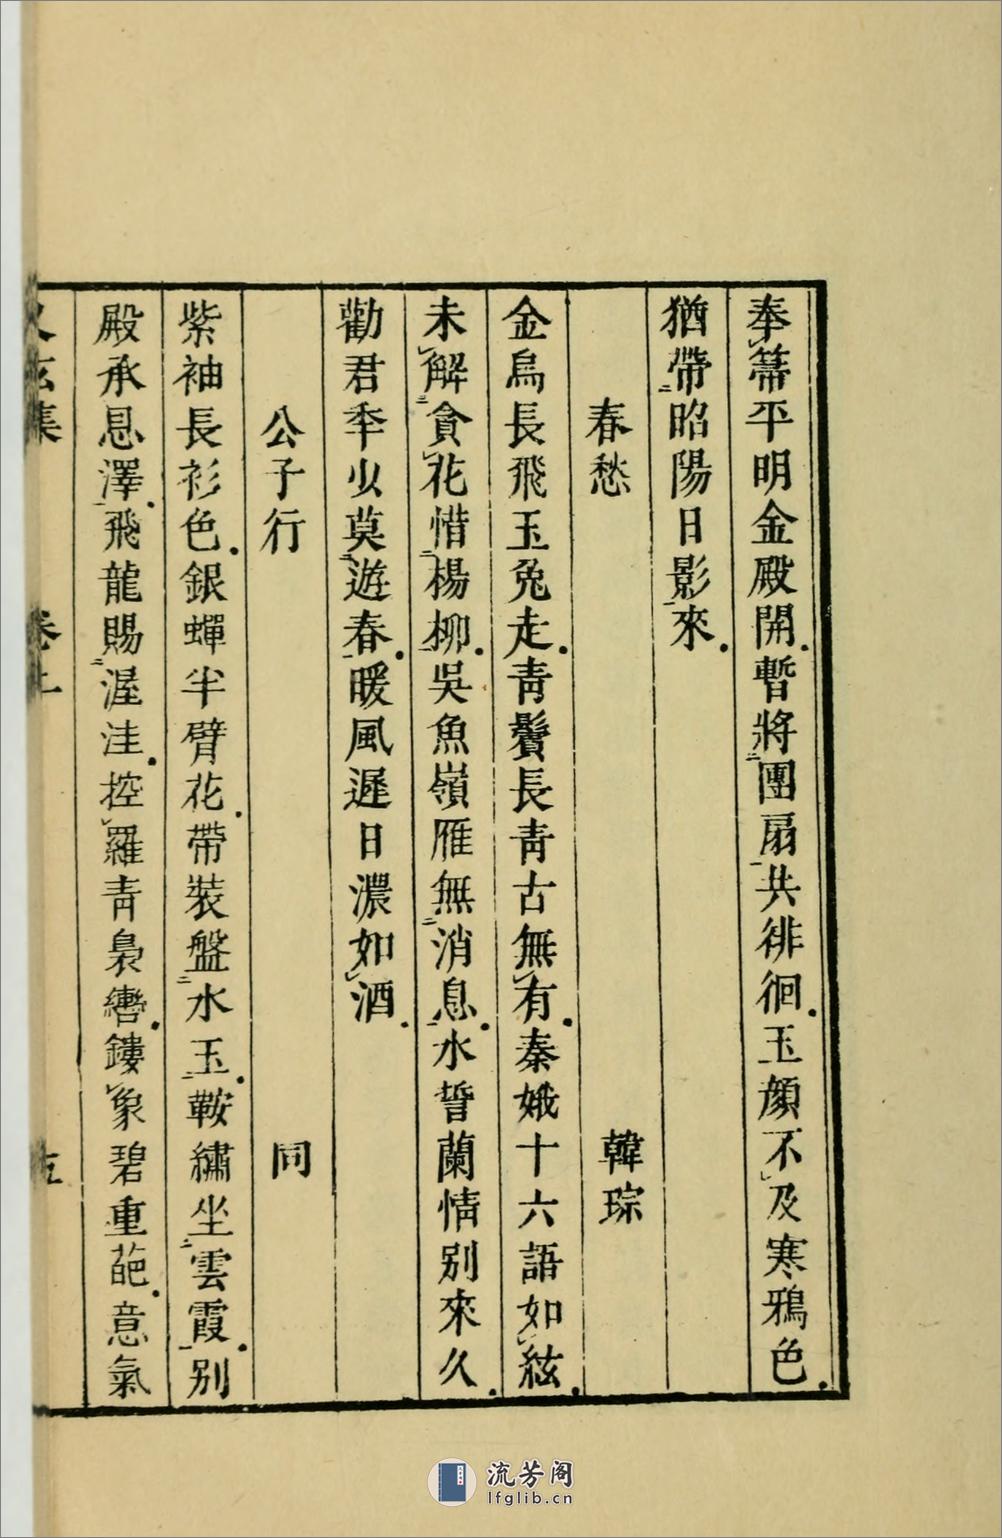 奉箒平明金殿開暫將團扇共徘徊玉顔不及寒鴉色
猶帶昭陽日影來
春愁 韓琮
金烏長飛玉兔走青鬢長青古無有秦娥十六語如絃
未解貪花惜楊柳吳魚嶺雁無消息水誓蘭情别來久
勸君年少莫遊春暖風遲日濃如酒
公子行 同
紫袖長衫色銀蟬半臂花帶裝盤水玉鞍繡坐雲霞别
殿承恩澤飛龍賜渥洼控羅青裊轡鏤象碧重葩意氣
玄集 卷上
流芳阁
lfglib.cn